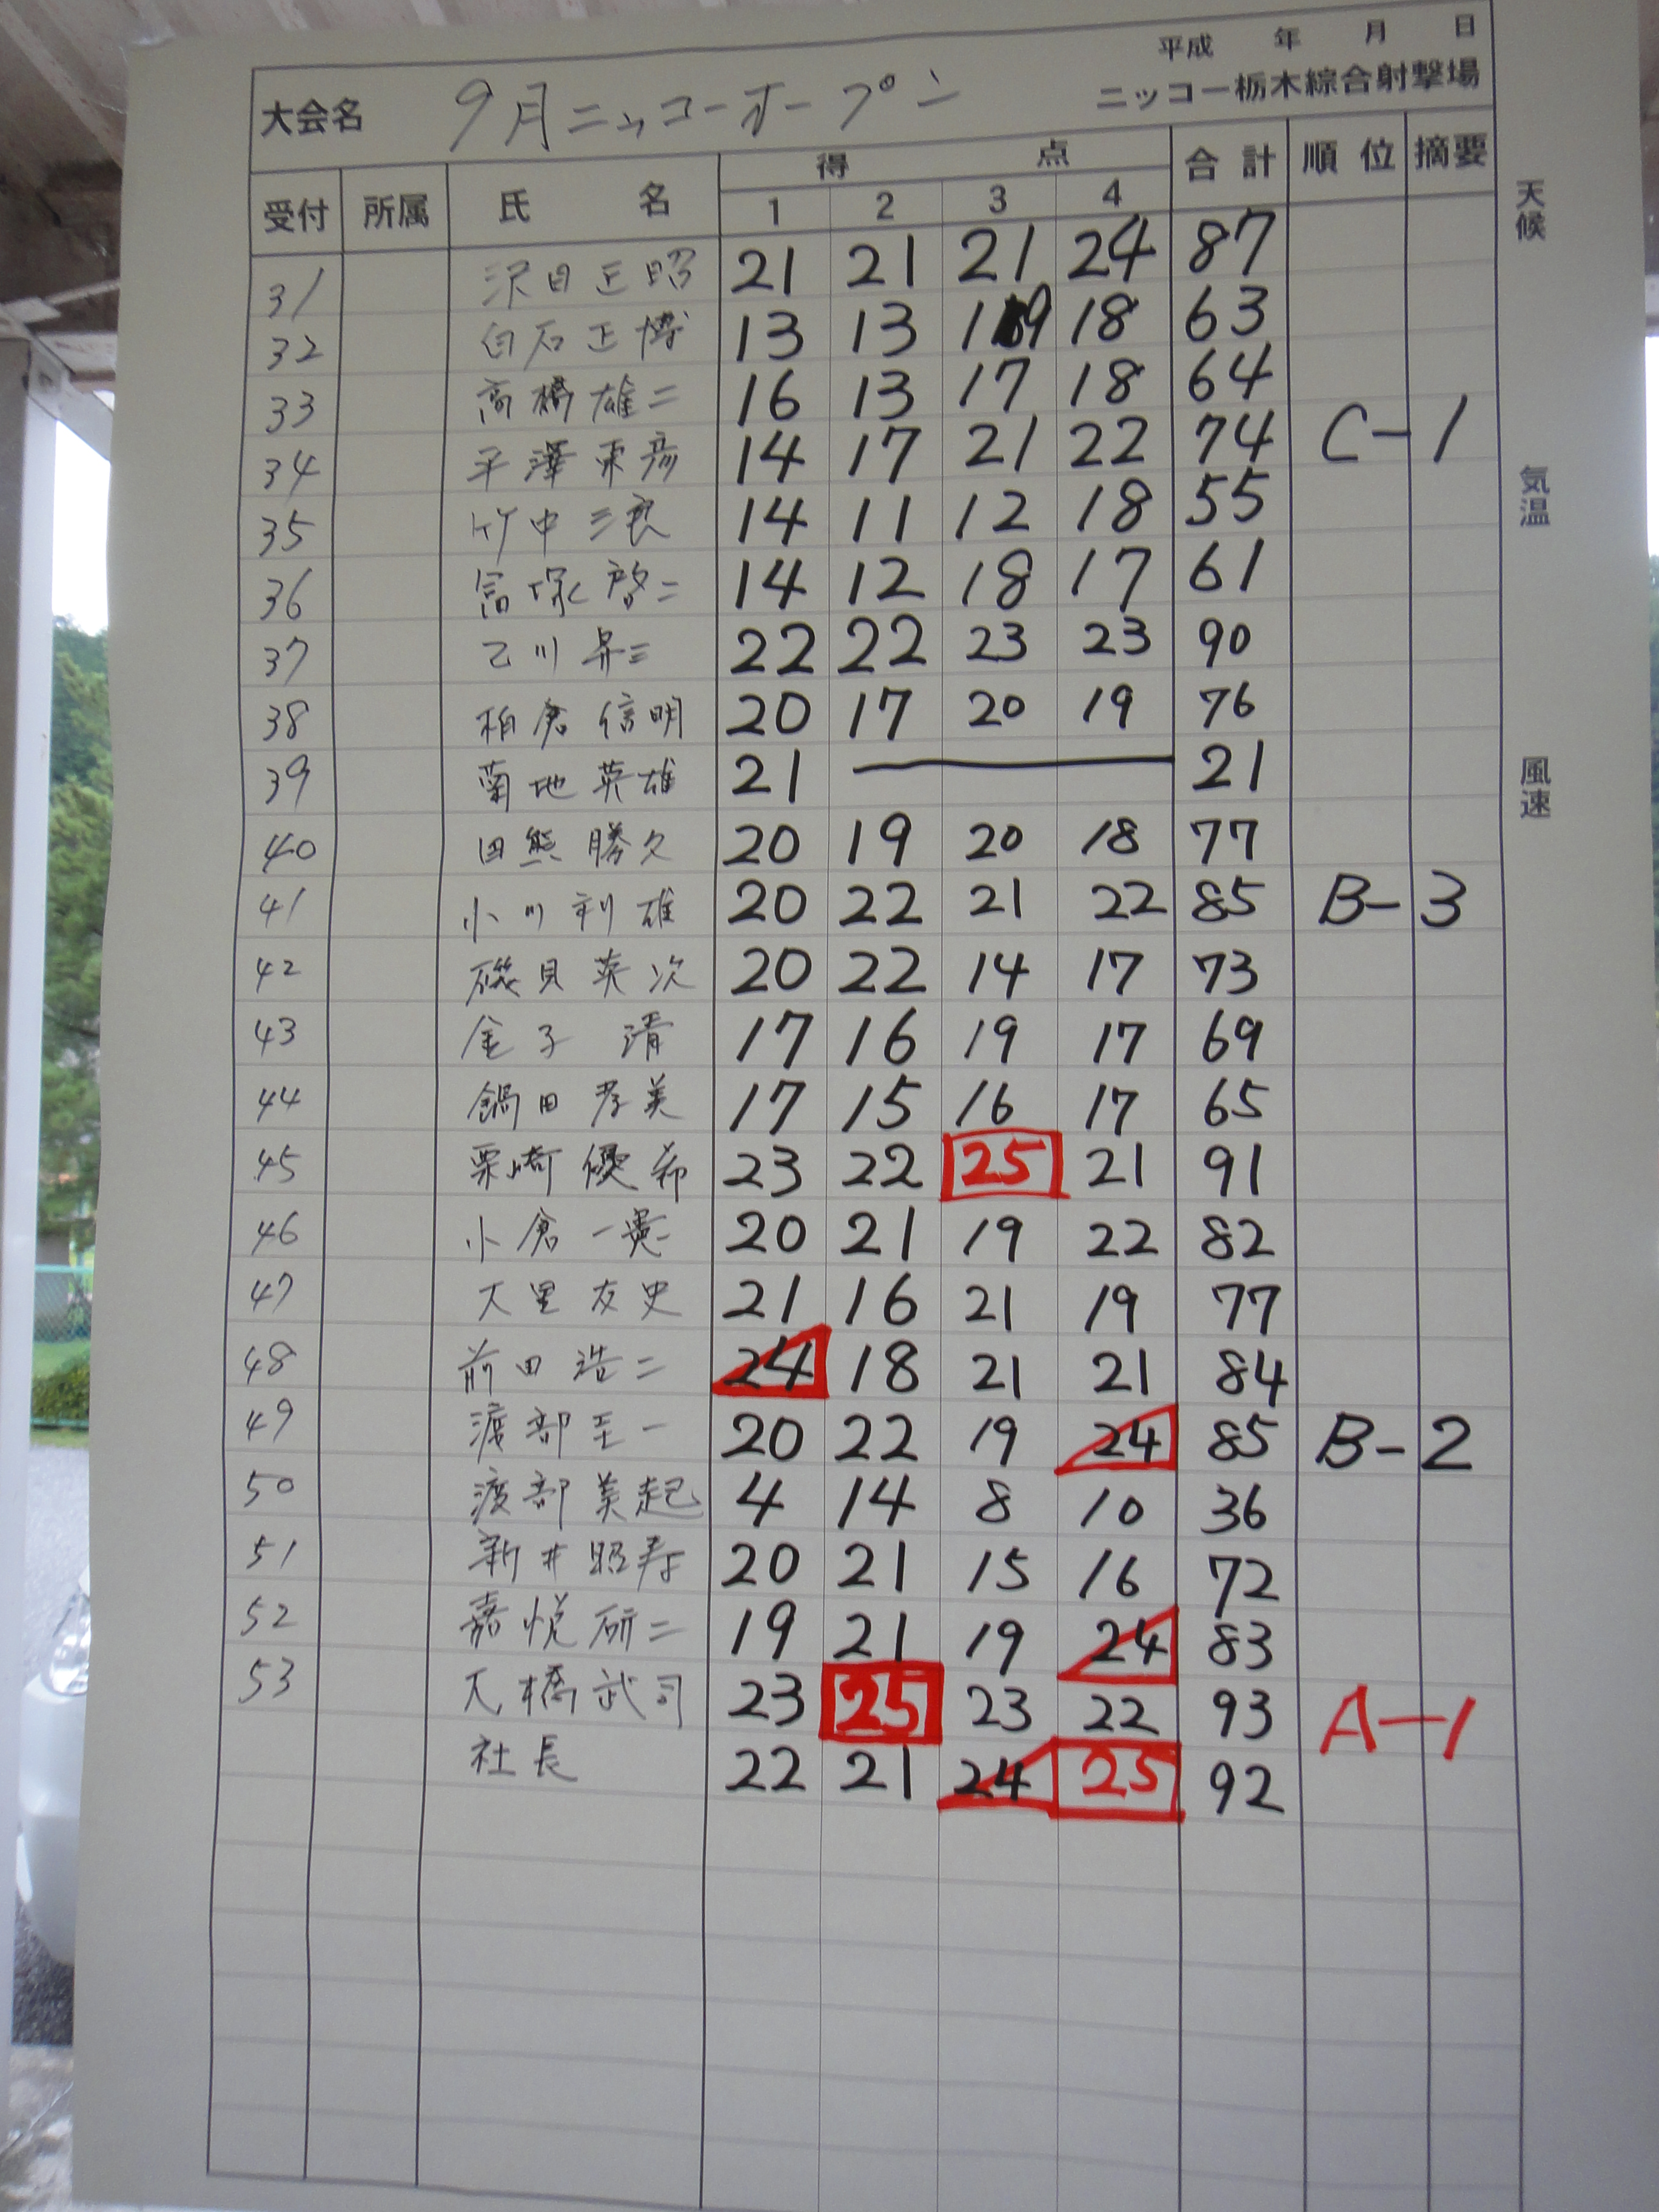 平成 年 月 日
大会名 9月ニッコーオープン ニッコー栃木綜合射撃場
受付 所属 氏名 得点 合計 順位 摘要
1 2 3 4
31 沢目正昭 21 21 21 24 87
32 白石正博 13 13 19 18 63
33 高橋雄二 16 13 17 18 64
34 平澤東彦 14 17 21 22 74 C-1
35 竹中三良 14 11 12 18 55
36 富塚啓二 14 12 18 17 61
37 乙川昇三 22 22 23 23 90
38 柏倉信明 20 17 20 19 76
39 菊地英雄 21 21
40 田熊勝久 20 19 20 18 77
41 小川利雄 20 22 21 22 85 B-3
42 磯貝英次 20 22 14 17 73
43 金子清 17 16 19 17 69
44 鍋田孝美 17 15 16 17 65
45 栗崎優希 23 22 25 21 91
46 小倉一憲 20 21 19 22 82
47 大里友史 21 16 21 19 77
48 前田浩二 24 18 21 21 84
49 渡部至一 20 22 19 24 85 B-2
50 渡部美起 4 14 8 10 36
51 新井昭寿 20 21 15 16 72
52 嘉悦研二 19 21 19 24 83
53 大橋武司 23 25 23 22 93 A-1
社長 22 21 24 25 92
天候
気温
風速